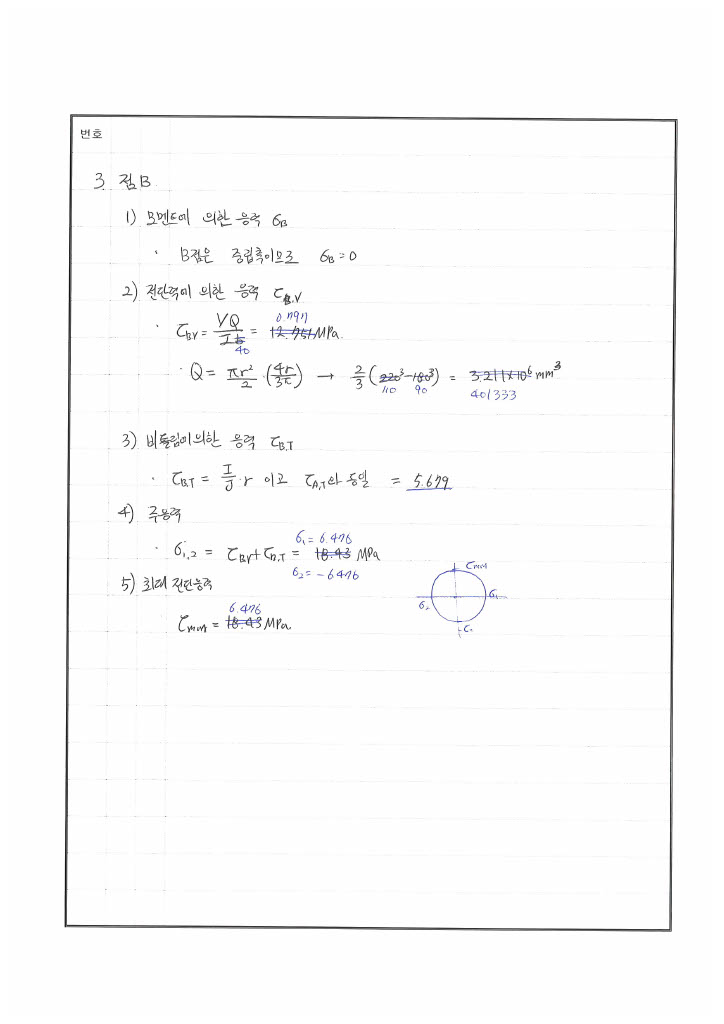 번호
3. 점B
1) 모멘트에 의한 응력 σB
· B점은 중립축이므로 σB = 0
2) 전단력에 의한 응력 τB,V
0.797
· τBV = VQ/Ib = 12.751 MPa.
40
· Q = πr²/2 · (4r/3π) → 2/3 (220³ - 180³) = 3.211×10⁶ mm³
110 90 401333
3) 비틀림에 의한 응력 τB,T
· τB,T = T/J · r 이고 τA,T와 동일 = 5.679
4) 주응력
σ₁ = 6.476
· σ1,2 = τBV + τB,T = 18.43 MPa
σ₂ = -6.476
5) 최대 전단응력
6.476
τmax = 18.43 MPa.
τmax
σ₂ σ₁